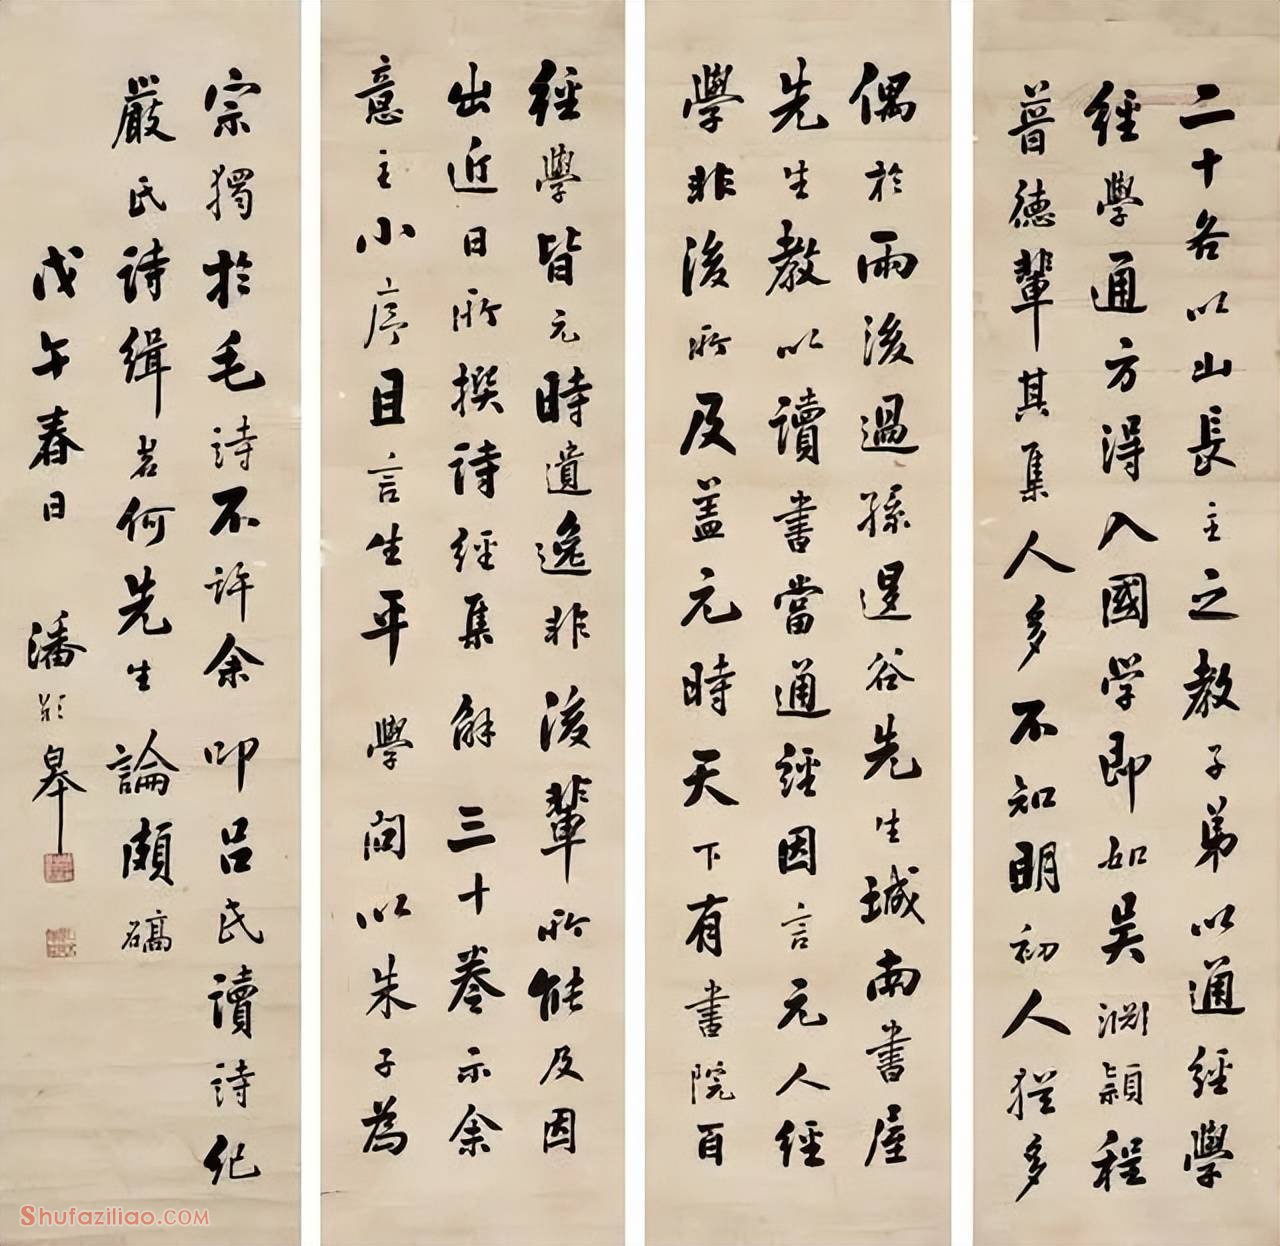 二十各以山長主之教子弟以通經學
經學通方得入國学即如吳淵穎程
普德輩其集人多不知明初人猶多
偶於雨後過孫退谷先生城南書屋
先生教以讀書當通經因言元人經
學非後所及蓋元時天下有書院百
經學皆元時遺逸非後輩所能及因
出近日所撰詩經集解三十卷示余
意主小序且言生平學問以朱子為
宗獨於毛詩不許余叩呂氏讀詩紀
嚴氏詩緝若何先生論頗碻
戊午春日 潘齡皋
Shufaziliao.COM